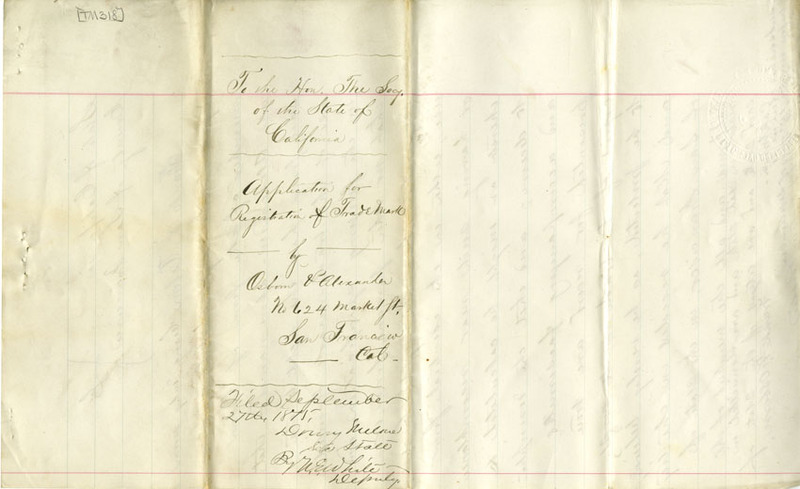 [TM318]
To the Hon. The Secy.
of the State of
California
Application for
Registration of Trade Mark
by
Osborn & Alexander
No 624 Market St.
San Francisco
Cal
Filed September
27th, 1875,
Drury Melone
Sec State
By
Deputy